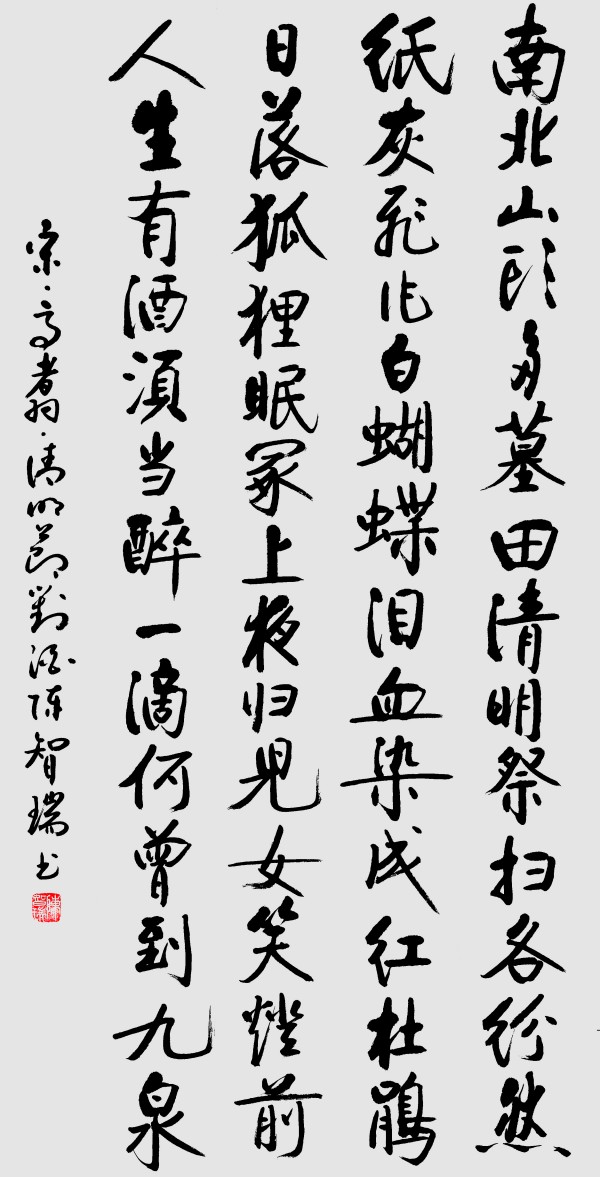 南北山头多墓田清明祭扫各纷然
纸灰飞作白蝴蝶泪血染成红杜鹃
日落狐狸眠冢上夜归儿女笑燈前
人生有酒须当醉一滴何曾到九泉
宋·高翥·清明節對酒陈智瑞书